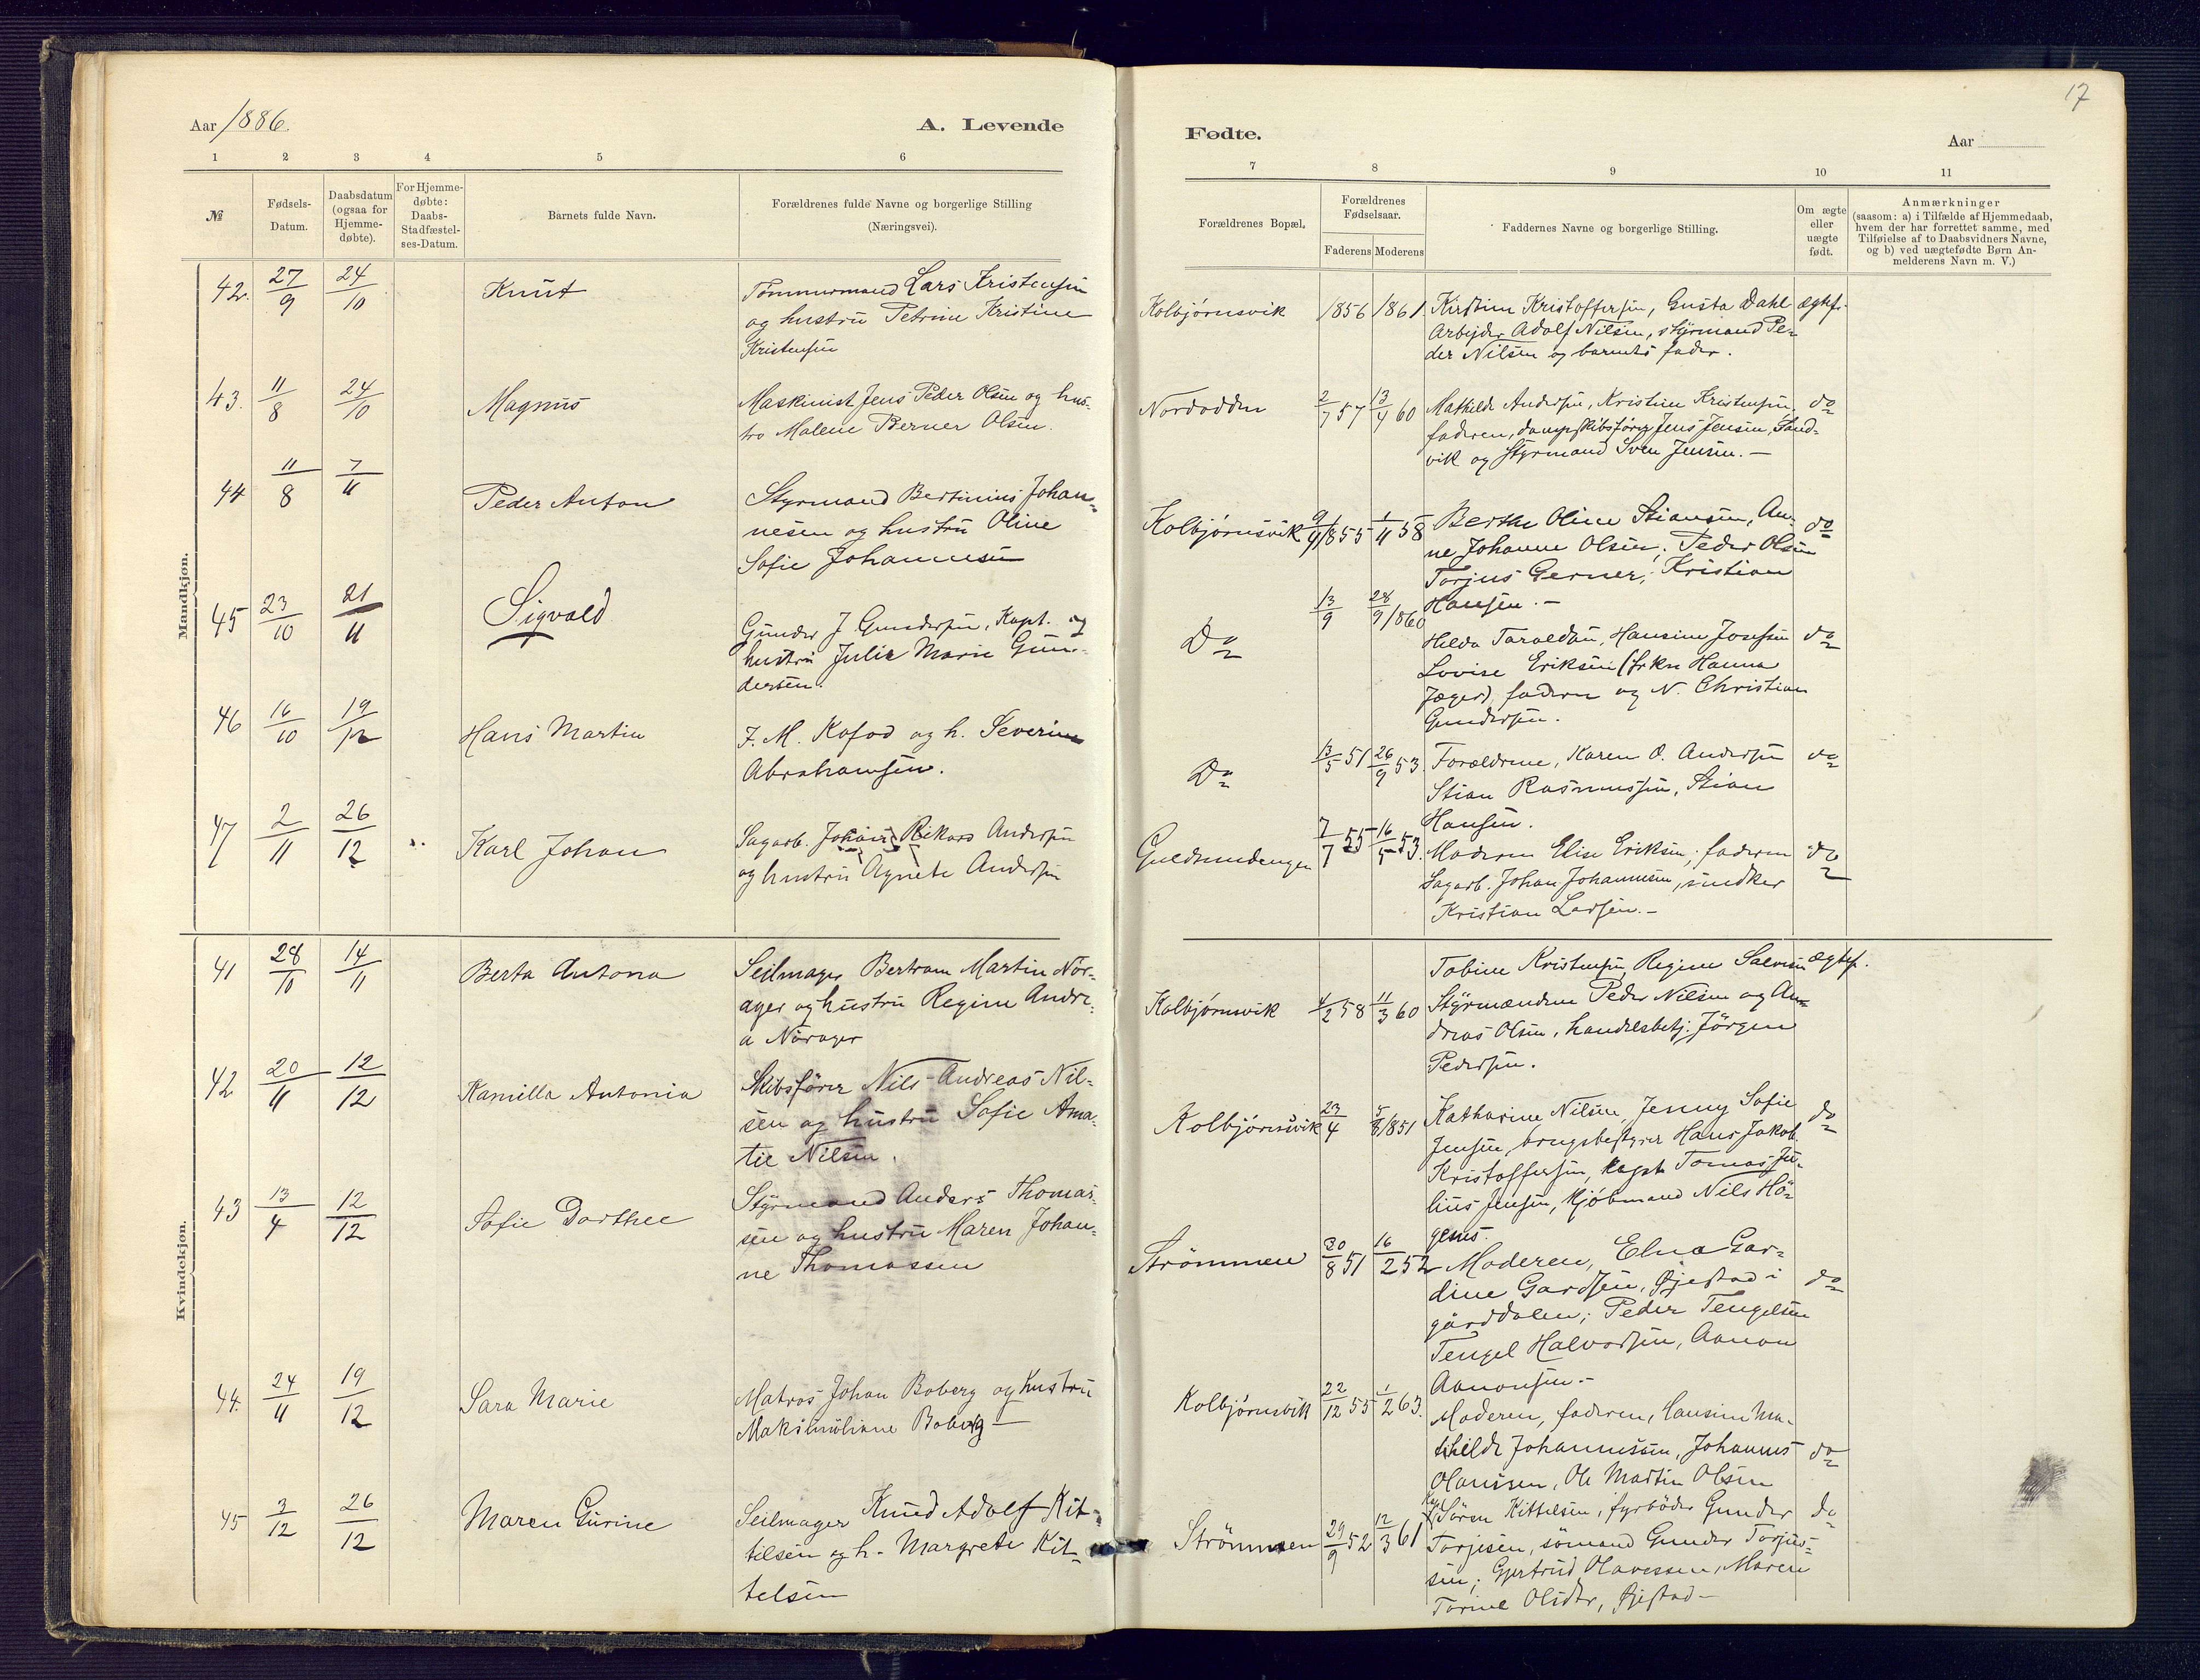 Aar 1886.
A. Levende
1 2 3 4 5 6
№
Fødsels-
Datum.
Daabsdatum
(ogsaa for
Hjemme-
døbte).
For Hjemme-
døbte:
Daabs-
Stadfæstel-
ses-Datum.
Barnets fulde Navn.
Forældrenes fulde Navne og borgerlige Stilling
(Næringsvei).
Mandkjøn.
42. 27/9 24/10 Knut
Tömmermand Lars Kristensen
og hustru Petrine Kristine
Kristensen
43. 11/8 24/10 Magnus
Maskinist Jens Peder Olsen og hus-
tro Malene Berner Olsen.
44 11/8 7/11 Peder Anton
Styrmand Bertinius Johan-
nesen og hustru Oline
Sofie Johannesen
45 23/10 21/11 Sigvald
Gunder J. Gundersen, Kapt. og
hustru Julie Marie Gun-
dersen.
46 16/10 19/12 Hans Martin
J. M. Kofod og h. Severine
Abrahamsen.
47 2/11 26/12 Karl Johan
Sagarb. Johan Rikard Andersen
og hustru Agnete Andersen
Kvindekjøn.
41 28/10 14/11 Berta Antona
Seilmager Bertram Martin Nör-
ager og hustru Regine Andre-
a Nörager
42 20/11 12/12 Kamilla Antonia
Skibsförer Nils Andreas Nil-
sen og hustru Sofie Ama-
lie Nilsen.
43 13/4 12/12 Sofie Dorthee
Styrmand Anders Thomas-
sen og hustru Maren Johan-
ne Thomassen
44. 24/11 19/12 Sara Marie
Matros Johan Boberg og hustru
Maksimiliane Boberg
45 3/12 26/12 Maren Gurine
Seilmager Knud Adolf Kit-
tilsen og h. Margrete Kit-
telsen
17
Fødte.
Aar
7 8 9 10 11
Forældrenes Bopæl.
Forældrenes
Fødselsaar.
Faderens Moderens
Faddernes Navne og borgerlige Stilling.
Om ægte
eller
uægte
født.
Anmærkninger
(saasom: a) i Tilfælde af Hjemmedaab,
hvem der har forrettet samme, med
Tilføielse af to Daabsvidners Navne,
og b) ved uægtefødte Børn An-
melderens Navn m. V.)
Kolbjørnsvik 1856 1861. Kirstine Kristoffersen, Gusta Dahl ægtef.
Arbejder Adolf Nilsen, styrmand Pe-
der Nilsen og barnets fader.
Nordodden 2/7 57 13/4 60 Mathilde Andersen, Kristine Kristensen, do
faderen, dampskibsfører Jens Jensen, Sand-
vik og Styrmand Sven Jensen. -
Kolbjørnsvik 9/4 1855 1/11 58 Berthe Oline Stiansen, An- do
ne Johanne Olsen; Peder Olsen
Torjus Gerner; Kristian
Hansen. -
Do 13/9 28/9 1860
Hilda Taraldsen, Hansine Josefsen do
Lovise Eriksen (frkn Hanna
Jæger), faderen og N. Christian
Gundersen.
Do 13/5 51 26/9 53. Forældrene, Karen O. Andersen do
Stian Rasmussen, Stian
Hansen.
Guldsmedengen 7/7 55 16/5 53. Moderen Elise Eriksen; faderen do
Sagarb. Johan Johannesen, snedker
Kristian Larsen. -
Tobine Kristensen, Regine Salvesen ægtef.
Kolbjørnsvik 4/2 58 11/3 60 Styrmændene Peder Nilsen og An-
dreas Olsen, handelsbetj. Jörgen
Pedersen.
Kolbjörnsvik 23/4 5/8 1851 Katharine Nilsen, Jenny Sofie do
Jensen, brugsbestyrer Hans Jakob
Kristoffersen, kapt. Tomas Ju-
lius Jensen, kjöbmand Nils Hö-
genes.
Strömmen 30/8 51 16/2 52 Moderen, Elna Gar-
dine Gardsen, Øjestad i do
gårddalen; Peder Tengelsen
Tengel Halvorsen, Aanon
Aanonsen. -
Kolbjørnsvik 22/12 55 1/2 63.
Moderen, faderen, Hansine Ma-
thilde Johannessen, Johannes do
Olanssen, Ole Martin Olsen
Sören Kittelsen, fyrböder Gunder do
Strömmen 29/9 52 12/3 61 Torjesen, sömand Gunder Torjus-
sen; Gjertrud Olavessen, Maren
Torine Olsdtr, Øjestad -